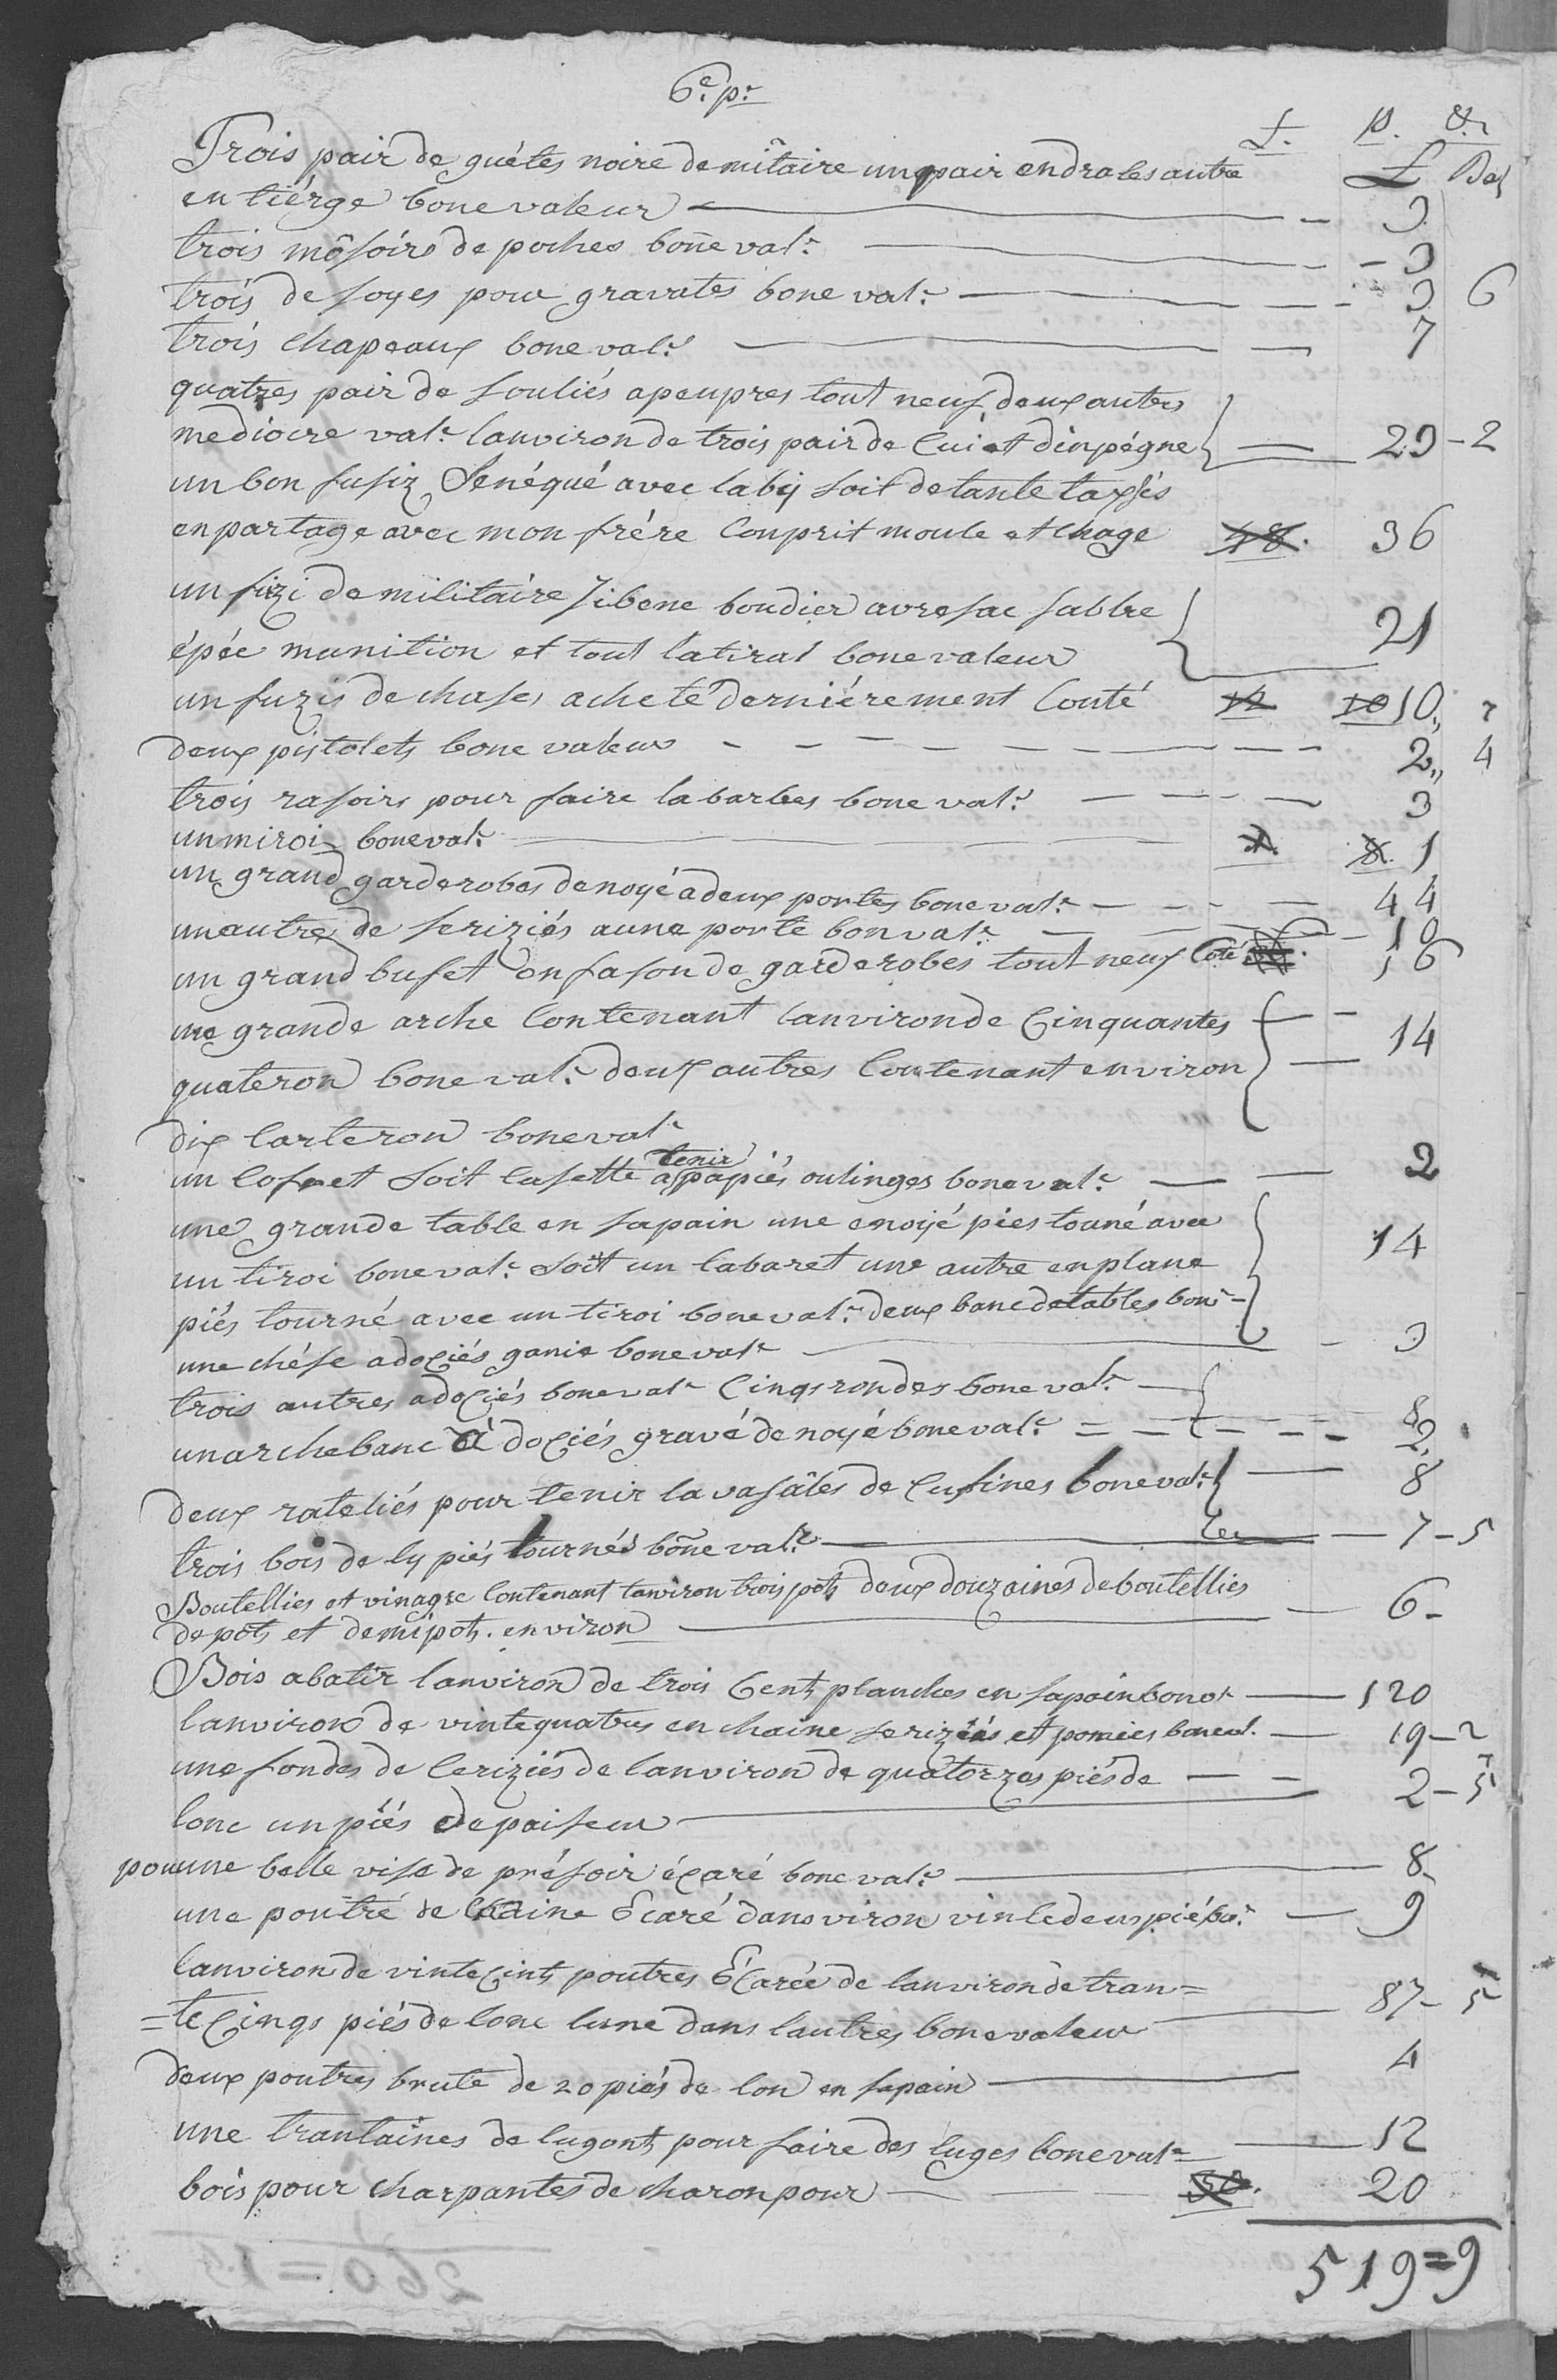 6.e p.r
£. s. d.r
Trois pair de guétes noire de militaire un pair en dra les autre £ Bas
en tiérge bone valeur 3
trois môsoirs de poches boñe val.r 3
trois de soyes pour gravates bone val.r 3 6
trois chapeaux bone val.r 7
quatres pair de souliés apeupres tout neuf deux autres
mediocre val.r lanviron de trois pair de Cui et dinpégne 29-2
un bon fusiz Senéqué avec laby soit detante taxés
en partage avec mon frére Conprit moule et chage 48. 36
un fizi de militaire Jibene boudier avresac sabbre
épée munition et tout latiral bone valeur 21
un fuzis de chases acheté derniérement Couté 12 10 10,, 7
deux pistolets bone valeur 2,, 4
trois rasoirs pour faire la barbes bone val.r 3
un miroi bone val.r 1
un grand garderobes de noyé a deux portes bone val.r 44
un autre de seriziés a une porte bon val.r 10
un grand bufet en fason de garderobes tout neuf Coté 16
une grande arche Contenant lanviron de Cinquantes
quateron bone val.r deux autres Contenant environ 14
dix Carteron bone val.r
un Cofret soit Casette a tenir papiés ou linges bone val.r 2
une grande table en sapain une enoyé pies touné avec
un tiroi bone val.r soit un Cabaret une autre en plane 14
piés tourné avec un tiroi bone val.r deux banc de tables bon.r
une chése a dociés ganie bone val.r 3
trois autres a dociés bone val.r Cinqs rondes bone val.r 8
un archebanc à dociés gravé de noyé bone val.r 2
deux rateliés pour tenir la vasâles de Cusines bone val.r 8
trois bois de ly piés tournés boñe val.r 7-5
Boutellies et vinagre Contenant lanviron trois pots deux douzaines de boutellies
de pots et demi pots. environ 6-
Bois a batir lanviron de trois Cents planches en sapain bone v.r 120
lanviron de vinte quatres en chaine seriziés et pomies bone val. 19-2
une fondes de Ceriziés de lanviron de quatorzes piés de 2-5
lonc un piés depaiseur
pour une belle vise de présoir écaré bone val.r 8-
une poutre de Chaine Ecaré dans viron vinte deus pié bo.r 9
lanviron de vinte Cints poutres Écarée de lanviron de tran=
=te Cinqs piés de lonc lune dans lautres bone valeur 87-5
deux poutres brute de 20 piés de lon en sapain 4
une trantaines de lugonts pour faire des luges bone val.r 12
bois pour charpantes de charon pour 50. 20
519=9